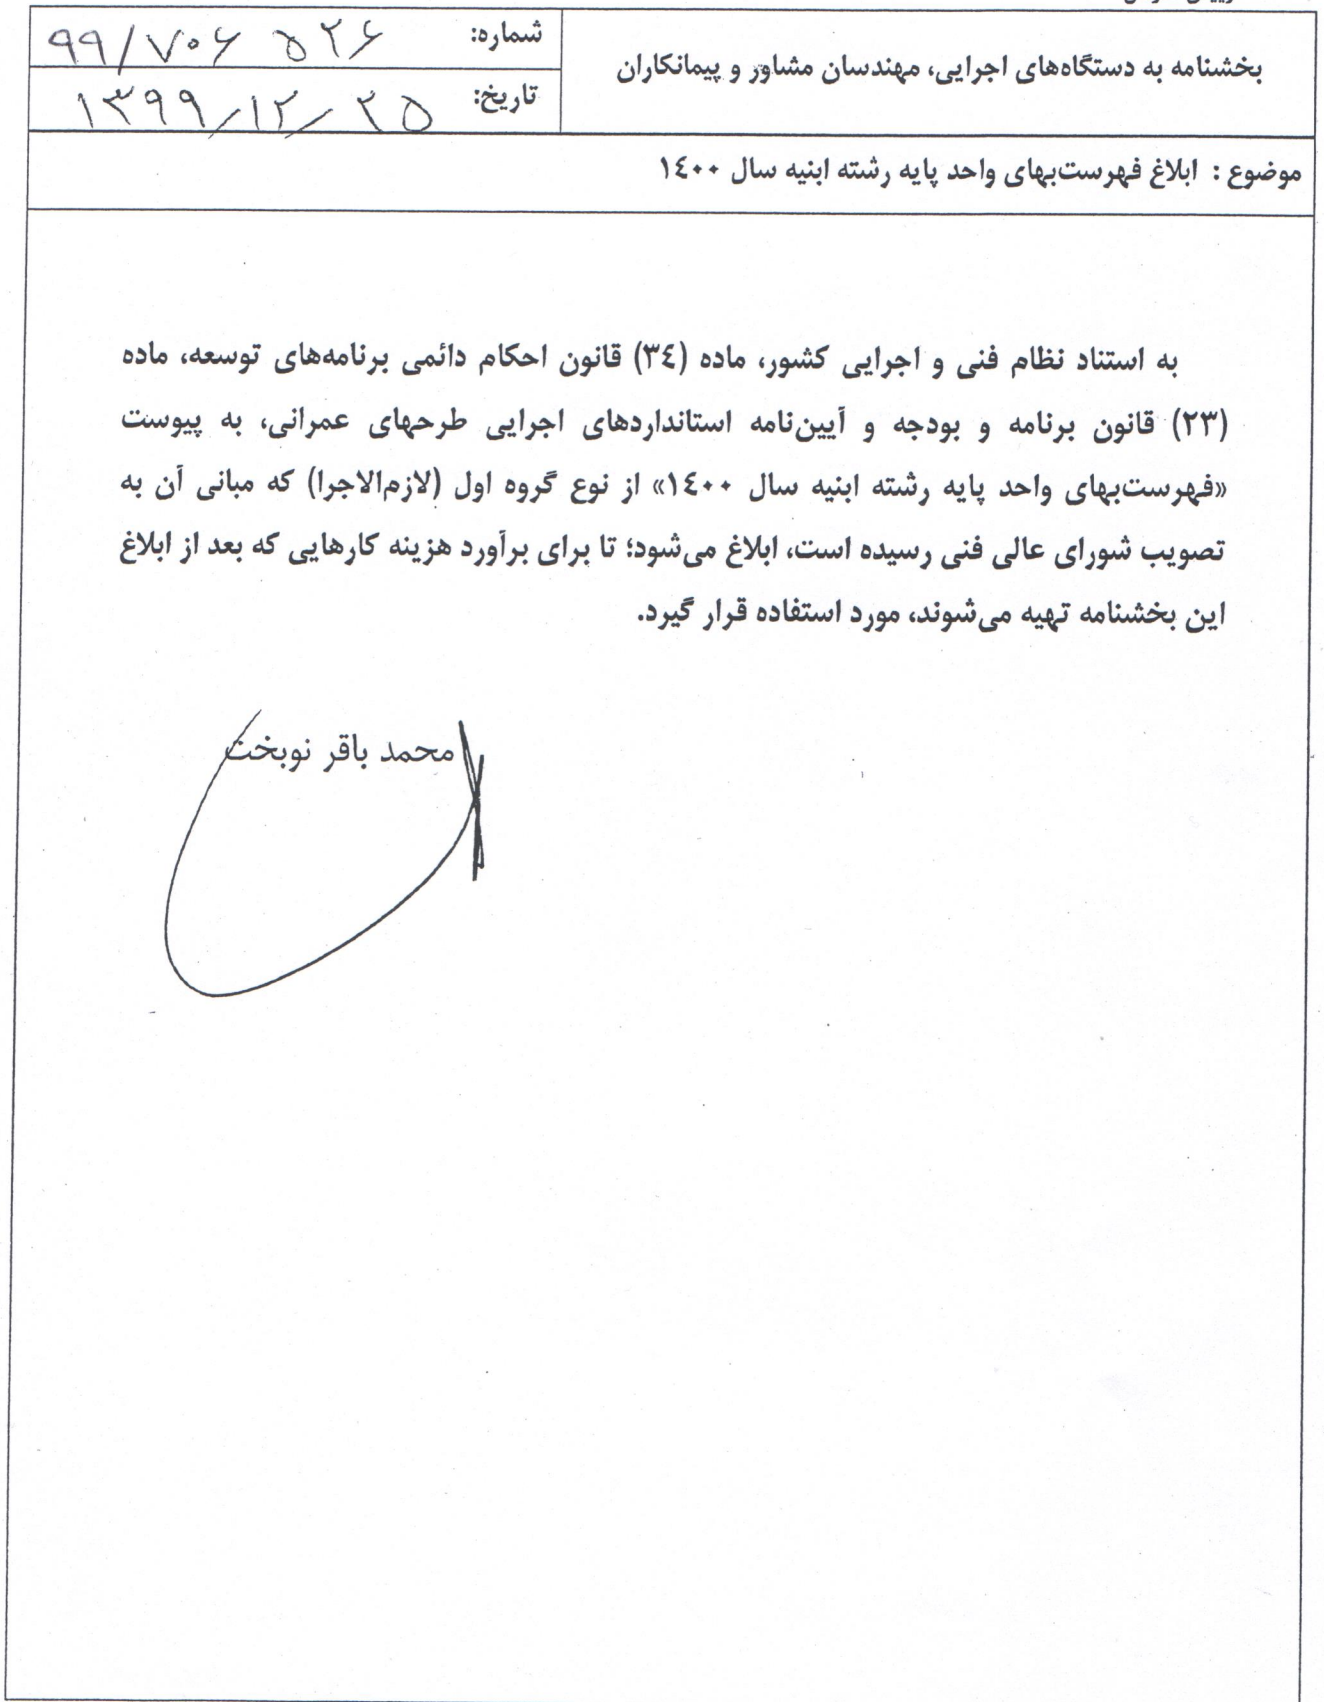 بخشنامه به دستگاه‌های اجرایی، مهندسان مشاور و پیمانکاران
شماره: ۹۹/۷۰۶۵۲۶
تاریخ: ۱۳۹۹/۱۲/۲۵
موضوع : ابلاغ فهرست‌بهای واحد پایه رشته ابنیه سال ۱۴۰۰
به استناد نظام فنی و اجرایی کشور، ماده (۳۴) قانون احکام دائمی برنامه‌های توسعه، ماده
(۲۳) قانون برنامه و بودجه و آیین‌نامه استانداردهای اجرایی طرحهای عمرانی، به پیوست
«فهرست‌بهای واحد پایه رشته ابنیه سال ۱۴۰۰» از نوع گروه اول (لازم‌الاجرا) که مبانی آن به
تصویب شورای عالی فنی رسیده است، ابلاغ می‌شود؛ تا برای برآورد هزینه کارهایی که بعد از ابلاغ
این بخشنامه تهیه می‌شوند، مورد استفاده قرار گیرد.
محمد باقر نوبخت